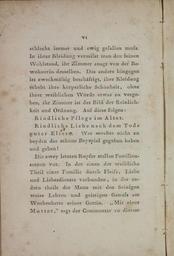 VI
schlecht immer und ewig gefallen muſs.
In ihrer Kleidung vermiſst man den feinen
Wohlstand, ihr Zimmer zeugt von der Be-
wohnerin derselben. Die andere hingegen
ist zweckmäſsig beschäftigt, ihre Kleidung
erhöht ihre körperliche Schönheit, ohne
ihrer weiblichen Würde etwas zu verge-
ben, ihr Zimmer ist das Bild der Reinlich-
keit und Ordnung. Auf diese folgen:
Kindliche Pflege im Alter.
Kindliche Liebe nach dem Tode
guter Eltern. Wer möchte nicht zu
beyden das schöne Beyspiel gegeben haben
und geben!
Die zwey letzten Kupfer stellen Familien-
scenen vor. In der einen der weibliche
Theil einer Familie durch Fleiſs, Liebe
und Liebesdienste verbunden, in der an-
dern theilt der Mann mit den Seinigen
weise Lehren und geistigen Genuſs am
Wochenbette seiner Gattin. „Mit einer
Mutter," sagt der Commentar zu diesem